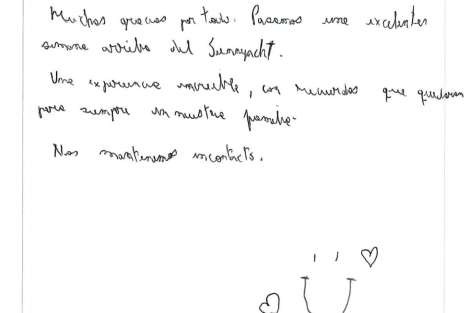 Muchas gracias por todo. Pasamos una excelentes
semana arriba del Sunnyacht.
Una experiencia increible, con recuerdos que quedaran
para siempre en nuestra familia.
Nos mantenemos incontacto.